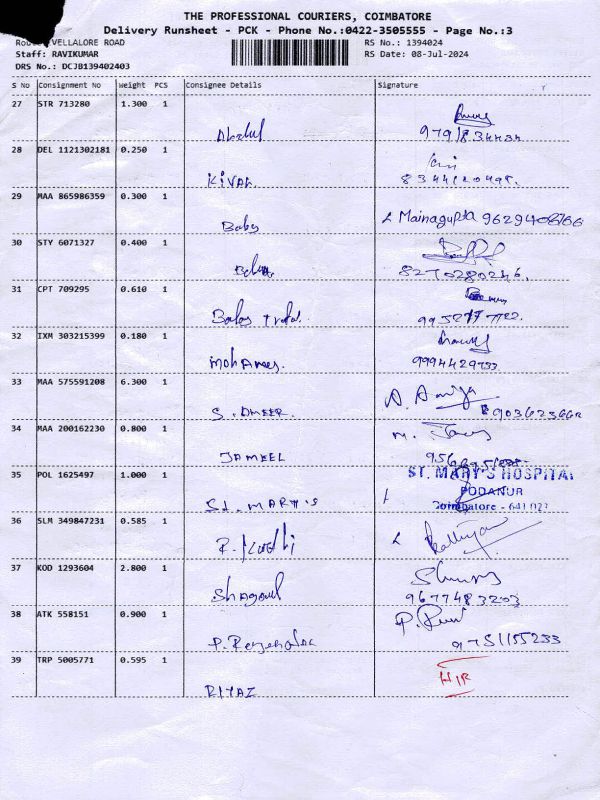 THE PROFESSIONAL COURIERS, COIMBATORE
Delivery Runsheet - PCK - Phone No.:0422-3505555 - Page No.:3
Route: VELLALORE ROAD RS No.: 1394024
Staff: RAVIKUMAR RS Date: 08-Jul-2024
DRS No.: DCJB139402403
S No Consignment No Weight PCS Consignee Details Signature
27 STR 713280 1.300 1
Abdul 9791834434
28 DEL 1121302181 0.250 1
29 MAA 865986359 0.300 1
Baby Mainagupta
30 STY 6071327 0.400 1
8270280246.
31 CPT 709295 0.610 1
32 IXM 303215399 0.180 1
9994429733
33 MAA 575591208 6.300 1
S. AMEER
34 MAA 200162230 0.800 1
JAMEEL
35 POL 1625497 1.000 1 ST. MARY'S HOSPITAL
PODANUR
St. MARY'S Coimbatore - 641 023
36 SLM 349847231 0.585 1
37 KOD 1293604 2.800 1
Shagul 9677483203
38 ATK 558151 0.900 1
9751155233
39 TRP 5005771 0.595 1
RIYAZ